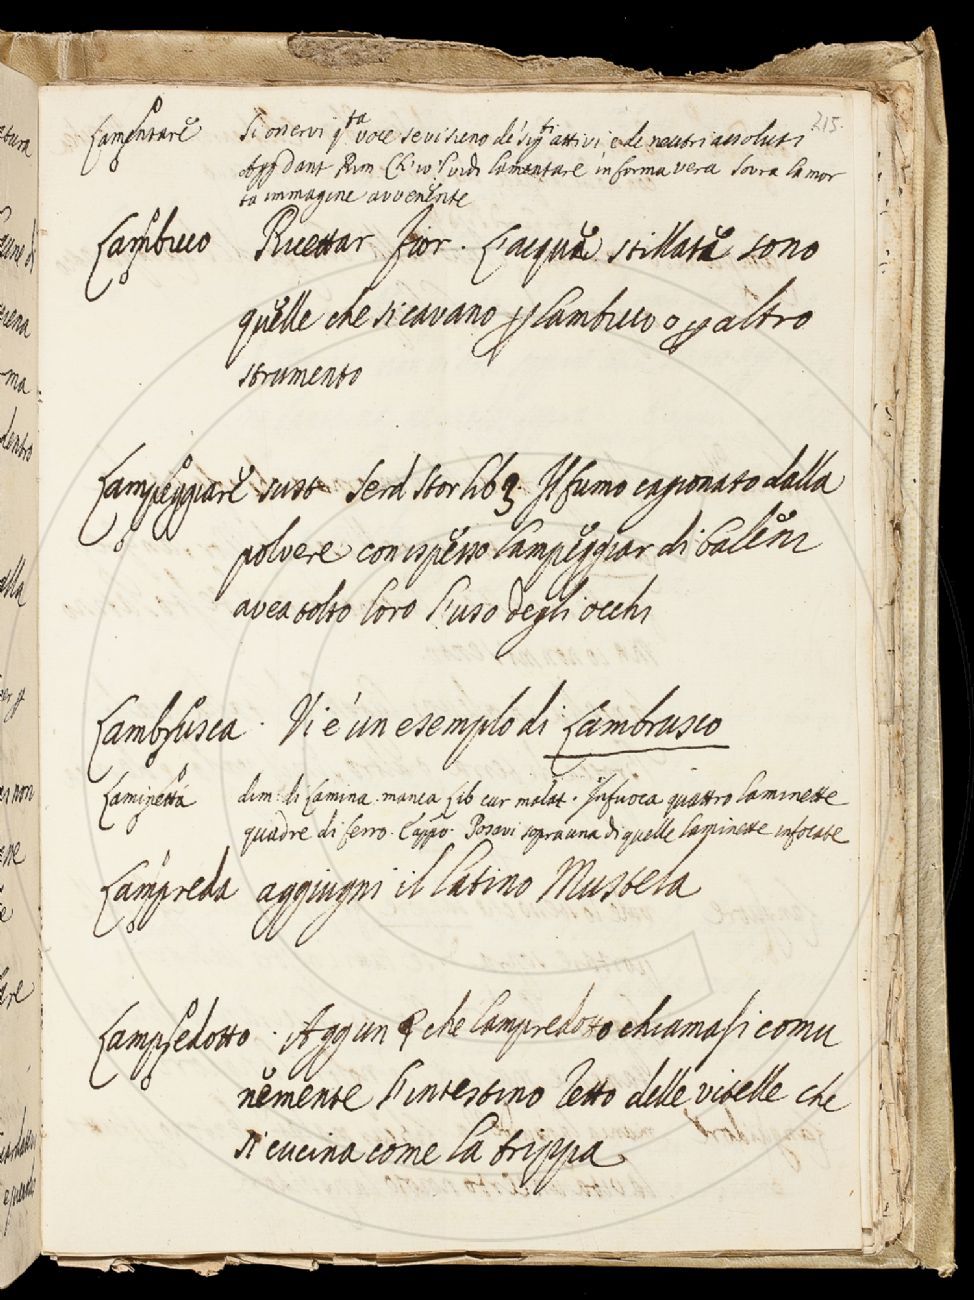 215.
Lamentare Si osservi qta voce se vi sieno de sigti attivi e de neutri assoluti
Dant Rim lamentare in forma vera sovra la mor
ta immagine avvenente
Lambicco Ricettar Fior. L'acqua stillata sono
quelle che si cavano p lambicco o p altro
strumento
Lampeggiare sust Serd Stor lib 3. Il fumo cagionato dalla
polvere con ispesso lampeggiar di baleni
avea tolto loro l'uso degli occhi
Lambrusca. Vi è un esempio di Lambrusco
Laminetta dim: di Lamina manca Lib cur malat. Infuoca quattro laminette
quadre di ferro. Cappo. Posavi sopra una di quelle laminette infocate
Lampreda aggiugni il latino Mustela
Lampredotto. Aggiun che lampredotto chiamasi comu
nemente l'intestino retto delle vitelle che
si cucina come la trippa